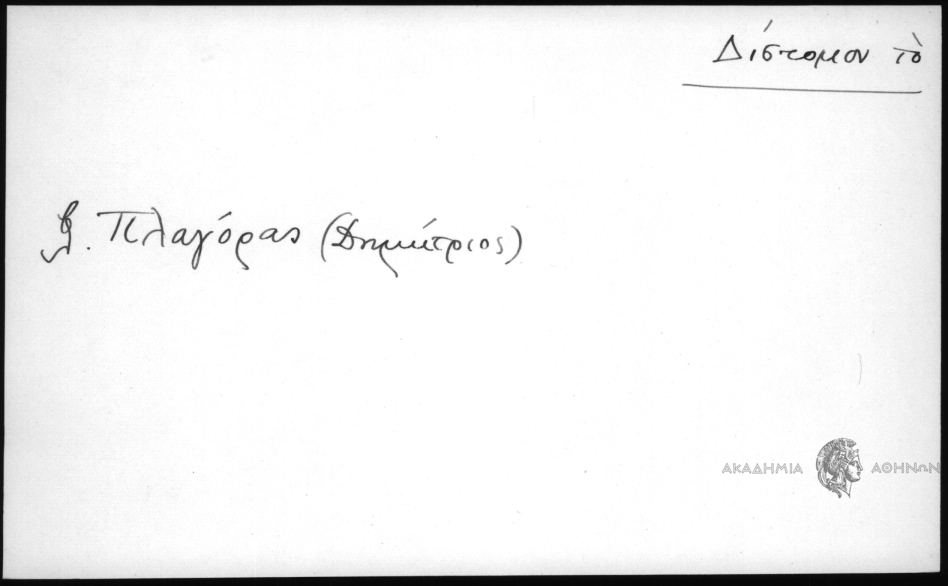 Δίστομον τὸ
βλ. Πλαγόρας (Δημήτριος)
ΑΚΑΔΗΜΙΑ ΑΘΗΝΩΝ